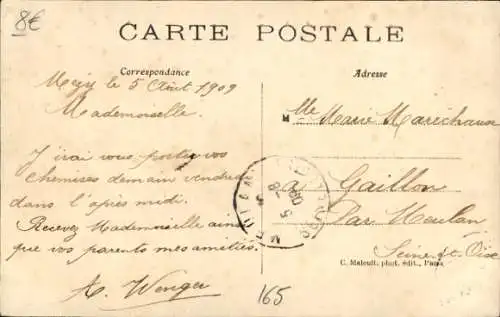 8€
CARTE POSTALE
Correspondance
Adresse
Mézy le 5 Août 1909
Mademoiselle.
J'irai vous porter vos
chemises demain vendredi
dans l'après midi.
Recevez Mademoiselle ainsi
que vos parents mes amitiés.
A. Wenger
Mlle Marie Maréchaux
à Gaillon
Par Meulan
Seine et Oise
C. Malcuit, phot. édit., Paris
165